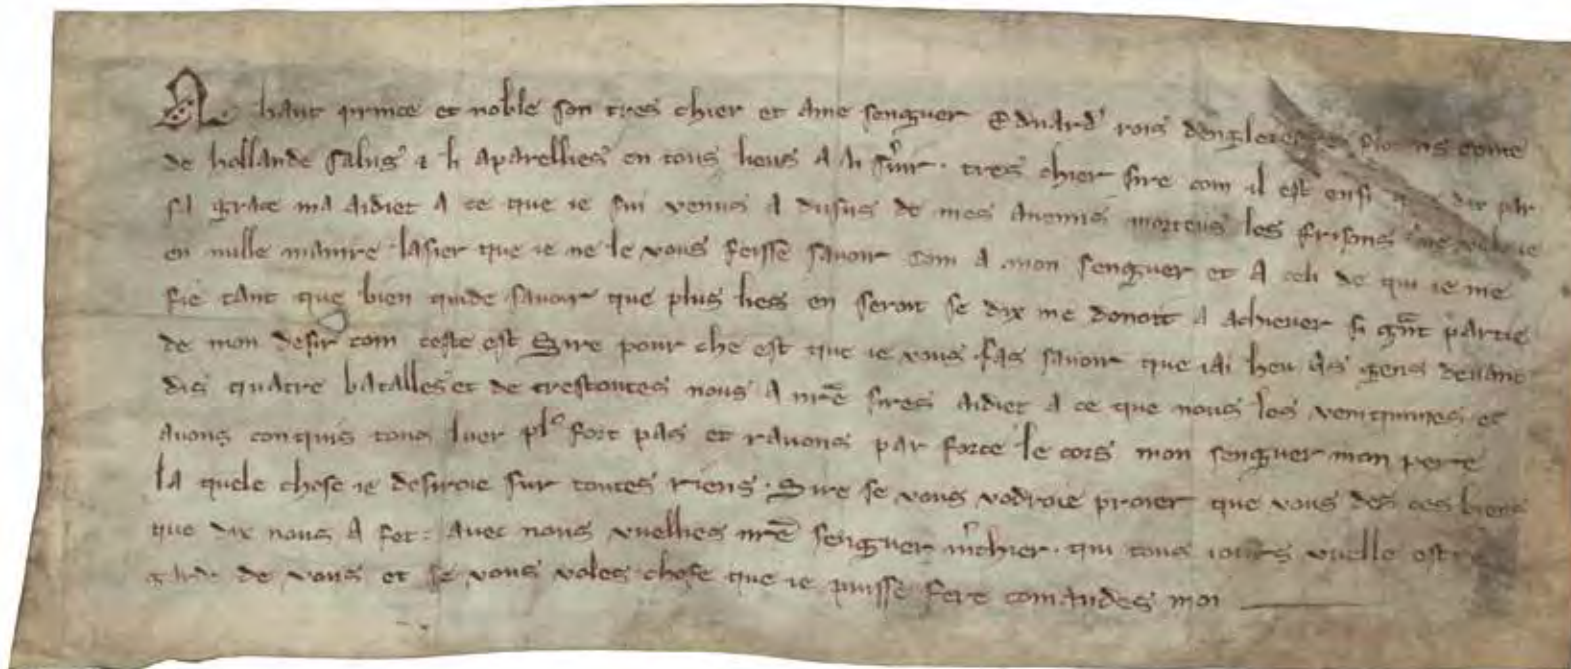 A haut prince et noble son tres chier et ame sengner Eduard' rois dengletere Florens conte
de hollande salus & li aparellies en tous lieus a li s'uir. tres chier sire com il est ensi que dix par
sa grace ma aidiet a ce que ie sui venus a dusus de mes anemis morteus les frisons ne
en nulle maniere lasier que ie ne le vous feisse sauoir com a mon sengner et a celi de qui ie me
fie tant que bien quide sauoir que plus lies en seroit se dix me donoit a achieuer si gnt partie
de mon desir com ceste est Sire pour che est que ie vous fas sauoir que iai heu as gens deuant
dis quatre batalles et de trestoutes nous a nre sires aidiet a ce que nous les venquimes et
auons conquis tous luer pl9 fort pas et rauons par force le cors mon sengner mon pere
la quele chose ie desiroie sur toutes riens. Sire se vous vodroie proier que vous des ces biens
que dix nous a fet: auec nous vuellies nre sengner m'chier. qui tous iours vuelle estre
garde de vous et se vous voles chose que ie puisse fere comandes moi